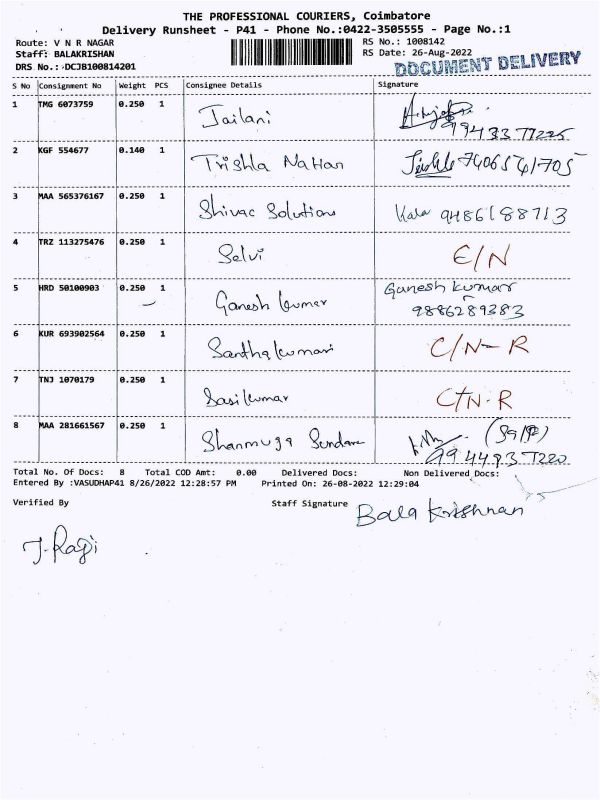 THE PROFESSIONAL COURIERS, Coimbatore
Delivery Runsheet - P41 - Phone No.:0422-3505555 - Page No.:1
Route: V N R NAGAR RS No.: 1008142
Staff: BALAKRISHAN RS Date: 26-Aug-2022
DRS No.: DCJB100814201 DOCUMENT DELIVERY
S No Consignment No Weight PCS Consignee Details Signature
1 TMG 6073759 0.250 1 Jailani
9943377225
2 KGF 554677 0.140 1 Trishla Nahan 7406561705
3 MAA 565376167 0.250 1 Shivac Solutions Kala 9486188713
4 TRZ 113275476 0.250 1 Selvi E/N
5 HRD 50100903 0.250 1 Ganesh kumar Ganesh kumar
9886289383
6 KUR 693902564 0.250 1 Santhakumari C/N-R
7 TNJ 1070179 0.250 1 Sasikumar C/N-R
8 MAA 281661567 0.250 1 Shanmuga Sundara
9944937220
Total No. Of Docs: 8 Total COD Amt: 0.00 Delivered Docs: Non Delivered Docs:
Entered By :VASUDHAP41 8/26/2022 12:28:57 PM Printed On: 26-08-2022 12:29:04
Verified By Staff Signature Bala Krishnan
J. Ragi